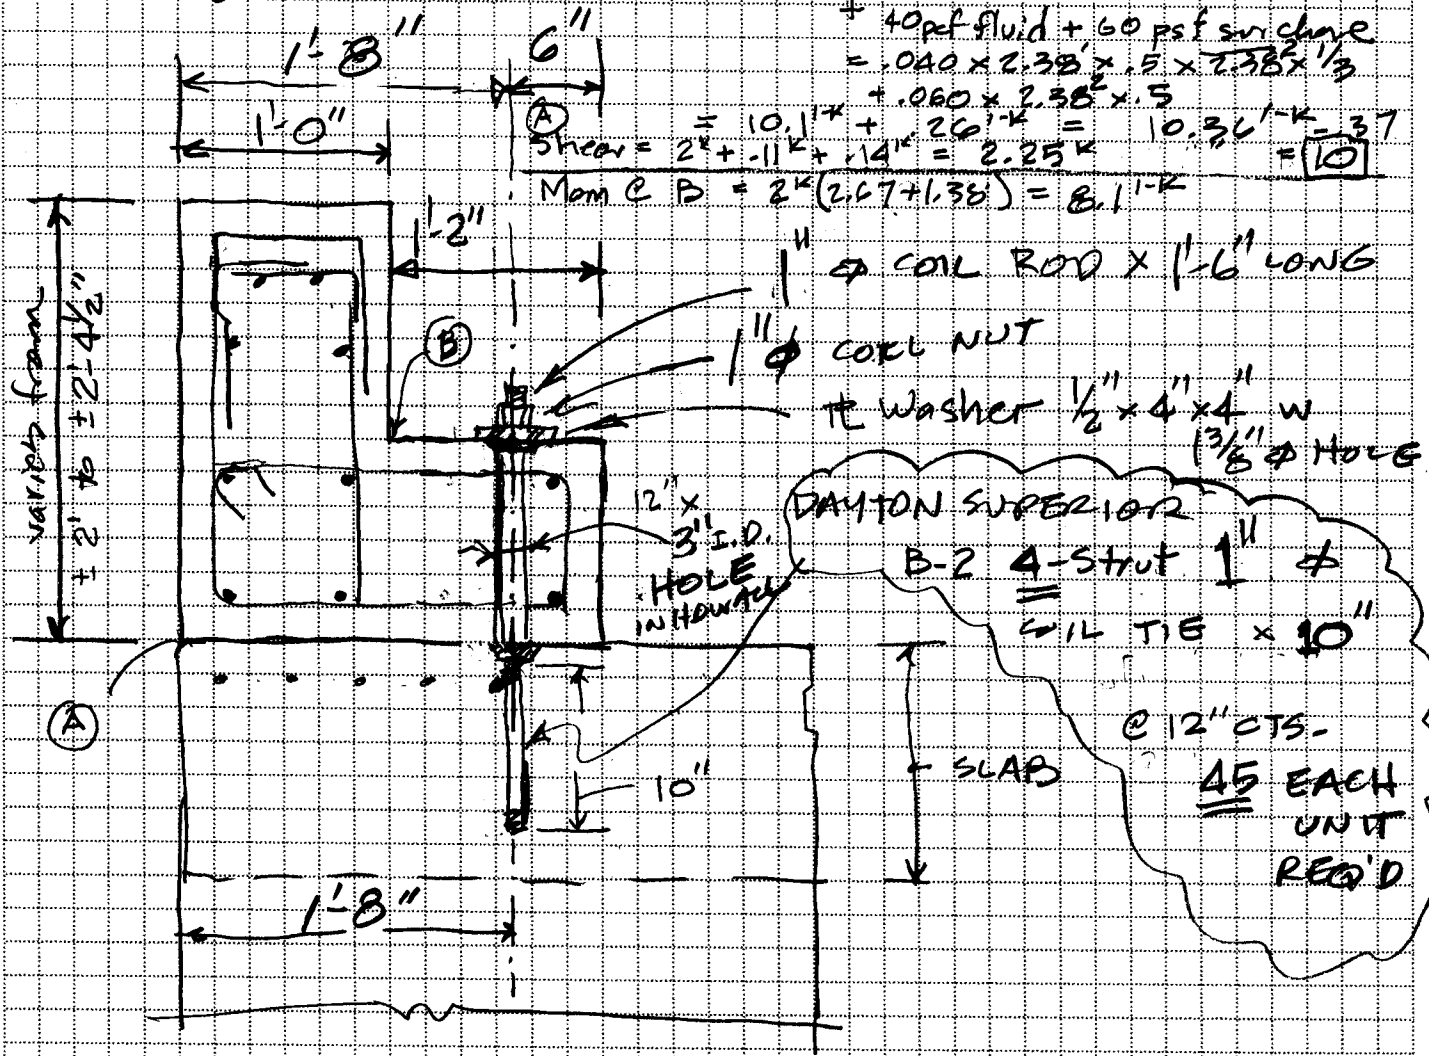 + 40pcf fluid + 60 psf surcharge
= .040 x 2.38' x .5 x 2.38² x 1/3
+ .060 x 2.38² x .5
= 10.1'-K + .26'-K = 10.36'-K - .37
Shear = 2K + .11K + .14K = 2.25K
= 10
Mom @ B = 2K (2.67+1.38') = 8.1'-K
1'-8"
6"
A
1'-0"
1'-2"
1" ϕ COIL ROD x 1'-6" LONG
1" ϕ COIL NUT
PL Washer 1/2" x 4" x 4" w
1 3/8" ϕ HOLE
B
varies from
± 2' to ± 2'-4 1/2"
12" x
3" I.D.
HOLE
IN HDWALL
DAYTON SUPERIOR
B-2 4-Strut 1" ϕ
COIL TIE x 10"
@ 12" CTS-
45 EACH
UNIT
REQ'D
A
10"
SLAB
1'-8"